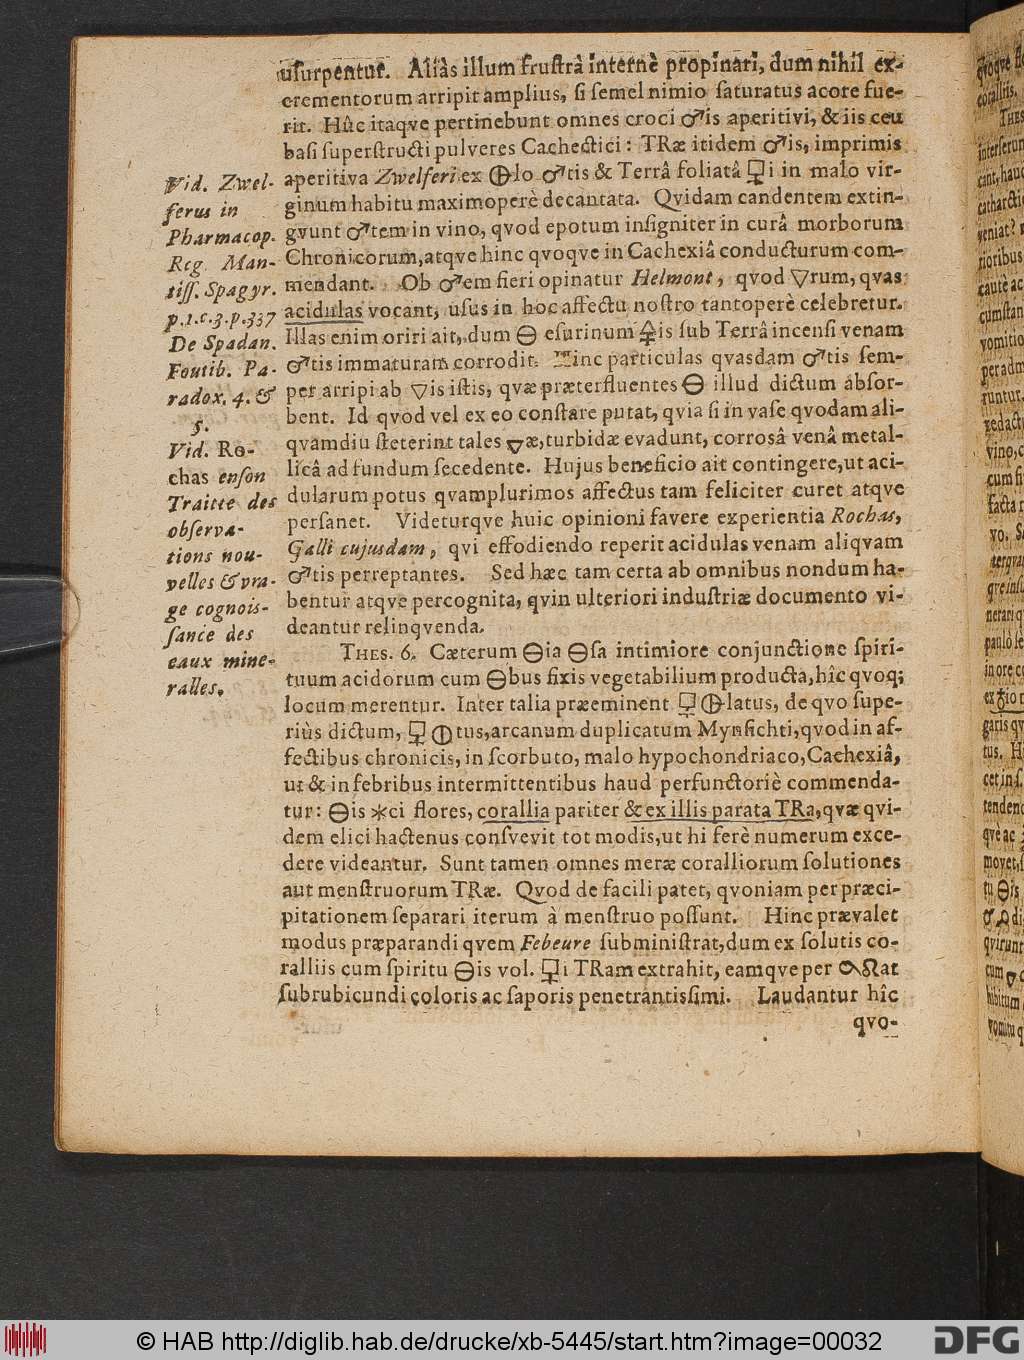 usurpentur. Aliàs illum frustrà internè propinari, dum nihil ex-
crementorum arripit amplius, si semel nimio saturatus acore fue-
rit. Hûc itaqve pertinebunt omnes croci ♂is aperitivi, & iis ceu
basi superstructi pulveres Cachectici: TRæ itidem ♂is, imprimis
aperitiva Zwelferi ex lo ♂tis & Terrâ foliatâ i in malo vir-
ginum habitu maximoperè decantata. Qvidam candentem extin-
gvunt ♂tem in vino, qvod epotum insigniter in curâ morborum
Chronicorum, atqve hinc qvoqve in Cachexiâ conducturum com-
mendant. Ob ♂em fieri opinatur Helmont, qvod ▽rum, qvas
acidulas vocant, usus in hoc affectu nostro tantoperè celebretur.
Illas enim oriri ait, dum ⊖ esurinum 🜍is sub Terrâ incensi venam
♂tis immaturam corrodit. Hinc particulas qvasdam ♂tis sem-
per arripi ab ▽is istis, qvæ præterfluentes ⊖ illud dictum absor-
bent. Id qvod vel ex eo constare putat, qvia si in vase qvodam ali-
qvamdiu steterint tales ▽æ, turbidæ evadunt, corrosâ venâ metal-
licâ ad fundum secedente. Hujus beneficio ait contingere, ut aci-
dularum potus qvamplurimos affectus tam feliciter curet atqve
persanet. Videturqve huic opinioni favere experientia Rochas,
Galli cujusdam, qvi effodiendo reperit acidulas venam aliqvam
♂tis perreptantes. Sed hæc tam certa ab omnibus nondum ha-
bentur atqve percognita, qvin ulteriori industriæ documento vi-
deantur relinqvenda.
THES. 6. Cæterum ⊖ia ⊖sa intimiore conjunctione spiri-
tuum acidorum cum ⊖bus fixis vegetabilium producta, hîc qvoq;
locum merentur. Inter talia præeminent latus, de qvo supe-
riùs dictum, tus, arcanum duplicatum Mynsichti, qvod in af-
fectibus chronicis, in scorbuto, malo hypochondriaco, Cachexiâ,
ut & in febribus intermittentibus haud perfunctoriè commenda-
tur: ⊖is ✱ci flores, corallia pariter & ex illis parata TRa, qvæ qvi-
dem elici hactenus consvevit tot modis, ut hi ferè numerum exce-
dere videantur. Sunt tamen omnes meræ coralliorum solutiones
aut menstruorum TRæ. Qvod de facili patet, qvoniam per præci-
pitationem separari iterum à menstruo possunt. Hinc prævalet
modus præparandi qvem Febeure subministrat, dum ex solutis co-
ralliis cum spiritu ⊖is vol. i TRam extrahit, eamqve per at
subrubicundi coloris ac saporis penetrantissimi. Laudantur hîc
qvo-
Vid. Zwel-
ferus in
Pharmacop.
Reg. Man-
tiss. Spagyr.
p.1.c.3.p.337
De Spadan.
Fontib. Pa-
radox. 4. &
5.
Vid. Ro-
chas en son
Traitte des
observa-
tions nou-
velles & vra-
ge cognois-
sance des
eaux mine-
ralles.
© HAB http://diglib.hab.de/drucke/xb-5445/start.htm?image=00032
DFG